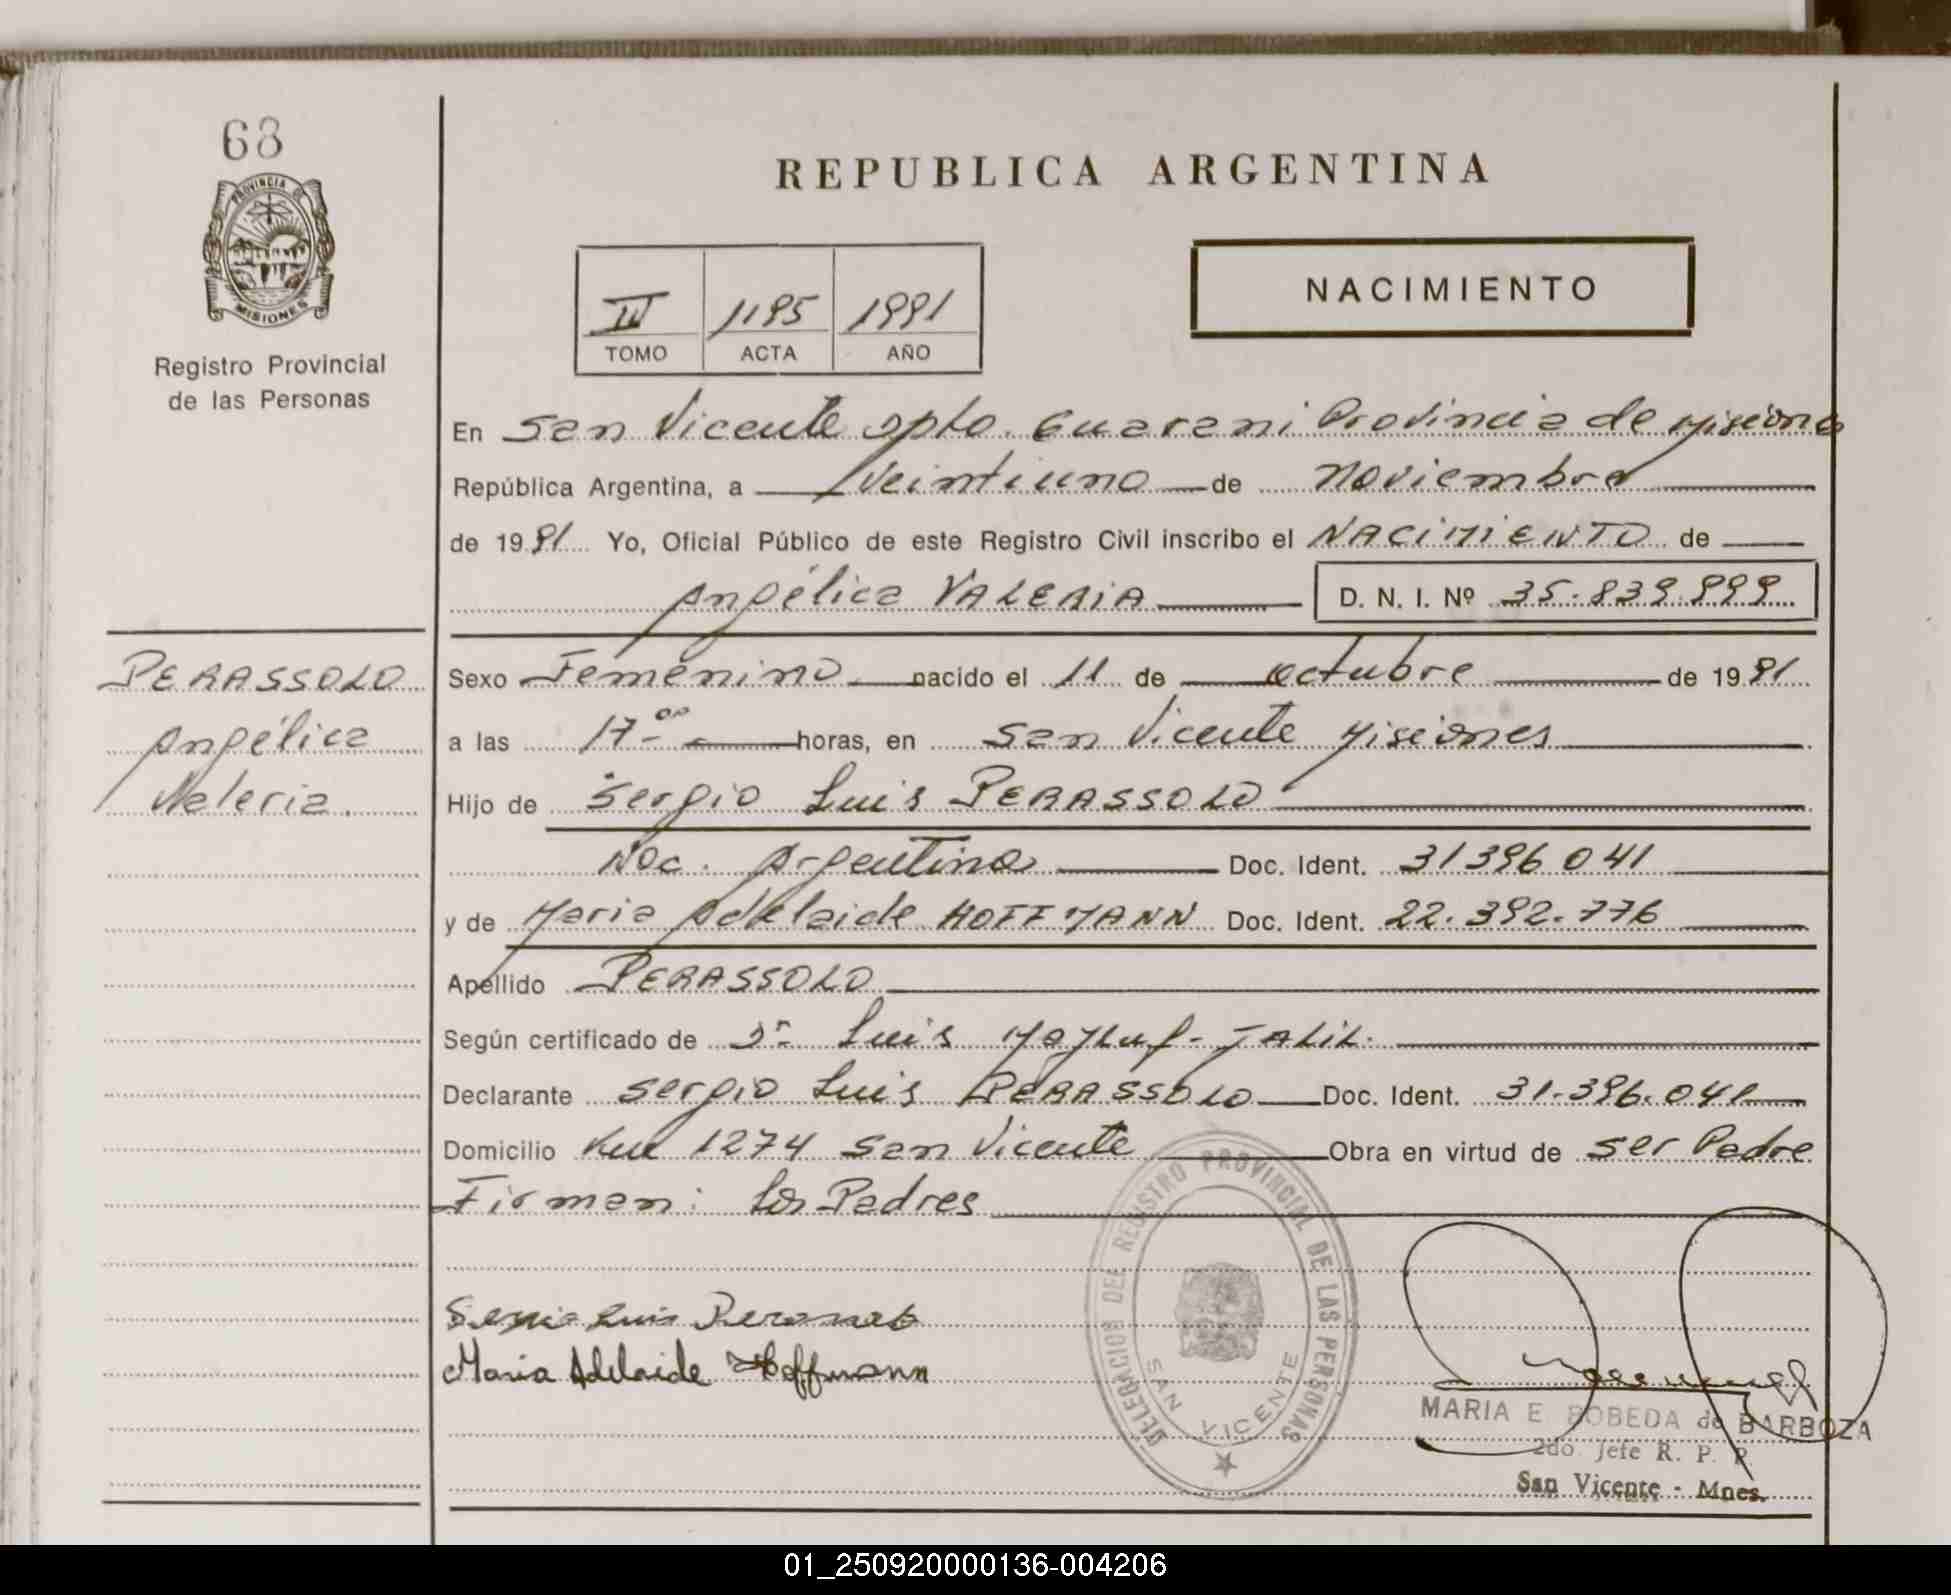 68
PROVINCIA D
MISIONES
Registro Provincial
de las Personas
REPUBLICA ARGENTINA
NACIMIENTO
IV 1195 1991
TOMO ACTA AÑO
En San Vicente Dpto. Guarani Provincia de Misiones
República Argentina, a Veintiuno de Noviembre
de 1991 Yo, Oficial Público de este Registro Civil inscribo el NACIMIENTO de
Angélica VALERIA D. N. I. Nº 35.839.999
PERASSOLO
Angélica
Valeria.
Sexo Femenino nacido el 11 de octubre de 1991
a las 17-00 horas, en San Vicente Misiones
Hijo de Sergio Luis PERASSOLO
Nac. Argentina Doc. Ident. 31396041
y de Maria Adelaide HOFFMANN Doc. Ident. 22.392.776
Apellido PERASSOLO
Según certificado de Dr. Luis JALIL.
Declarante Sergio Luis PERASSOLO Doc. Ident. 31.396.041
Domicilio Km 1274 San Vicente Obra en virtud de ser Padre
Firman: Los Padres
Luis
Maria Adelaide Hoffmann
DELEGACION DEL REGISTRO PROVINCIAL DE LAS PERSONAS
SAN VICENTE
MARIA E BOBEDA de BARBOZA
2do. Jefe R. P. P.
San Vicente - Mnes.
01_250920000136-004206